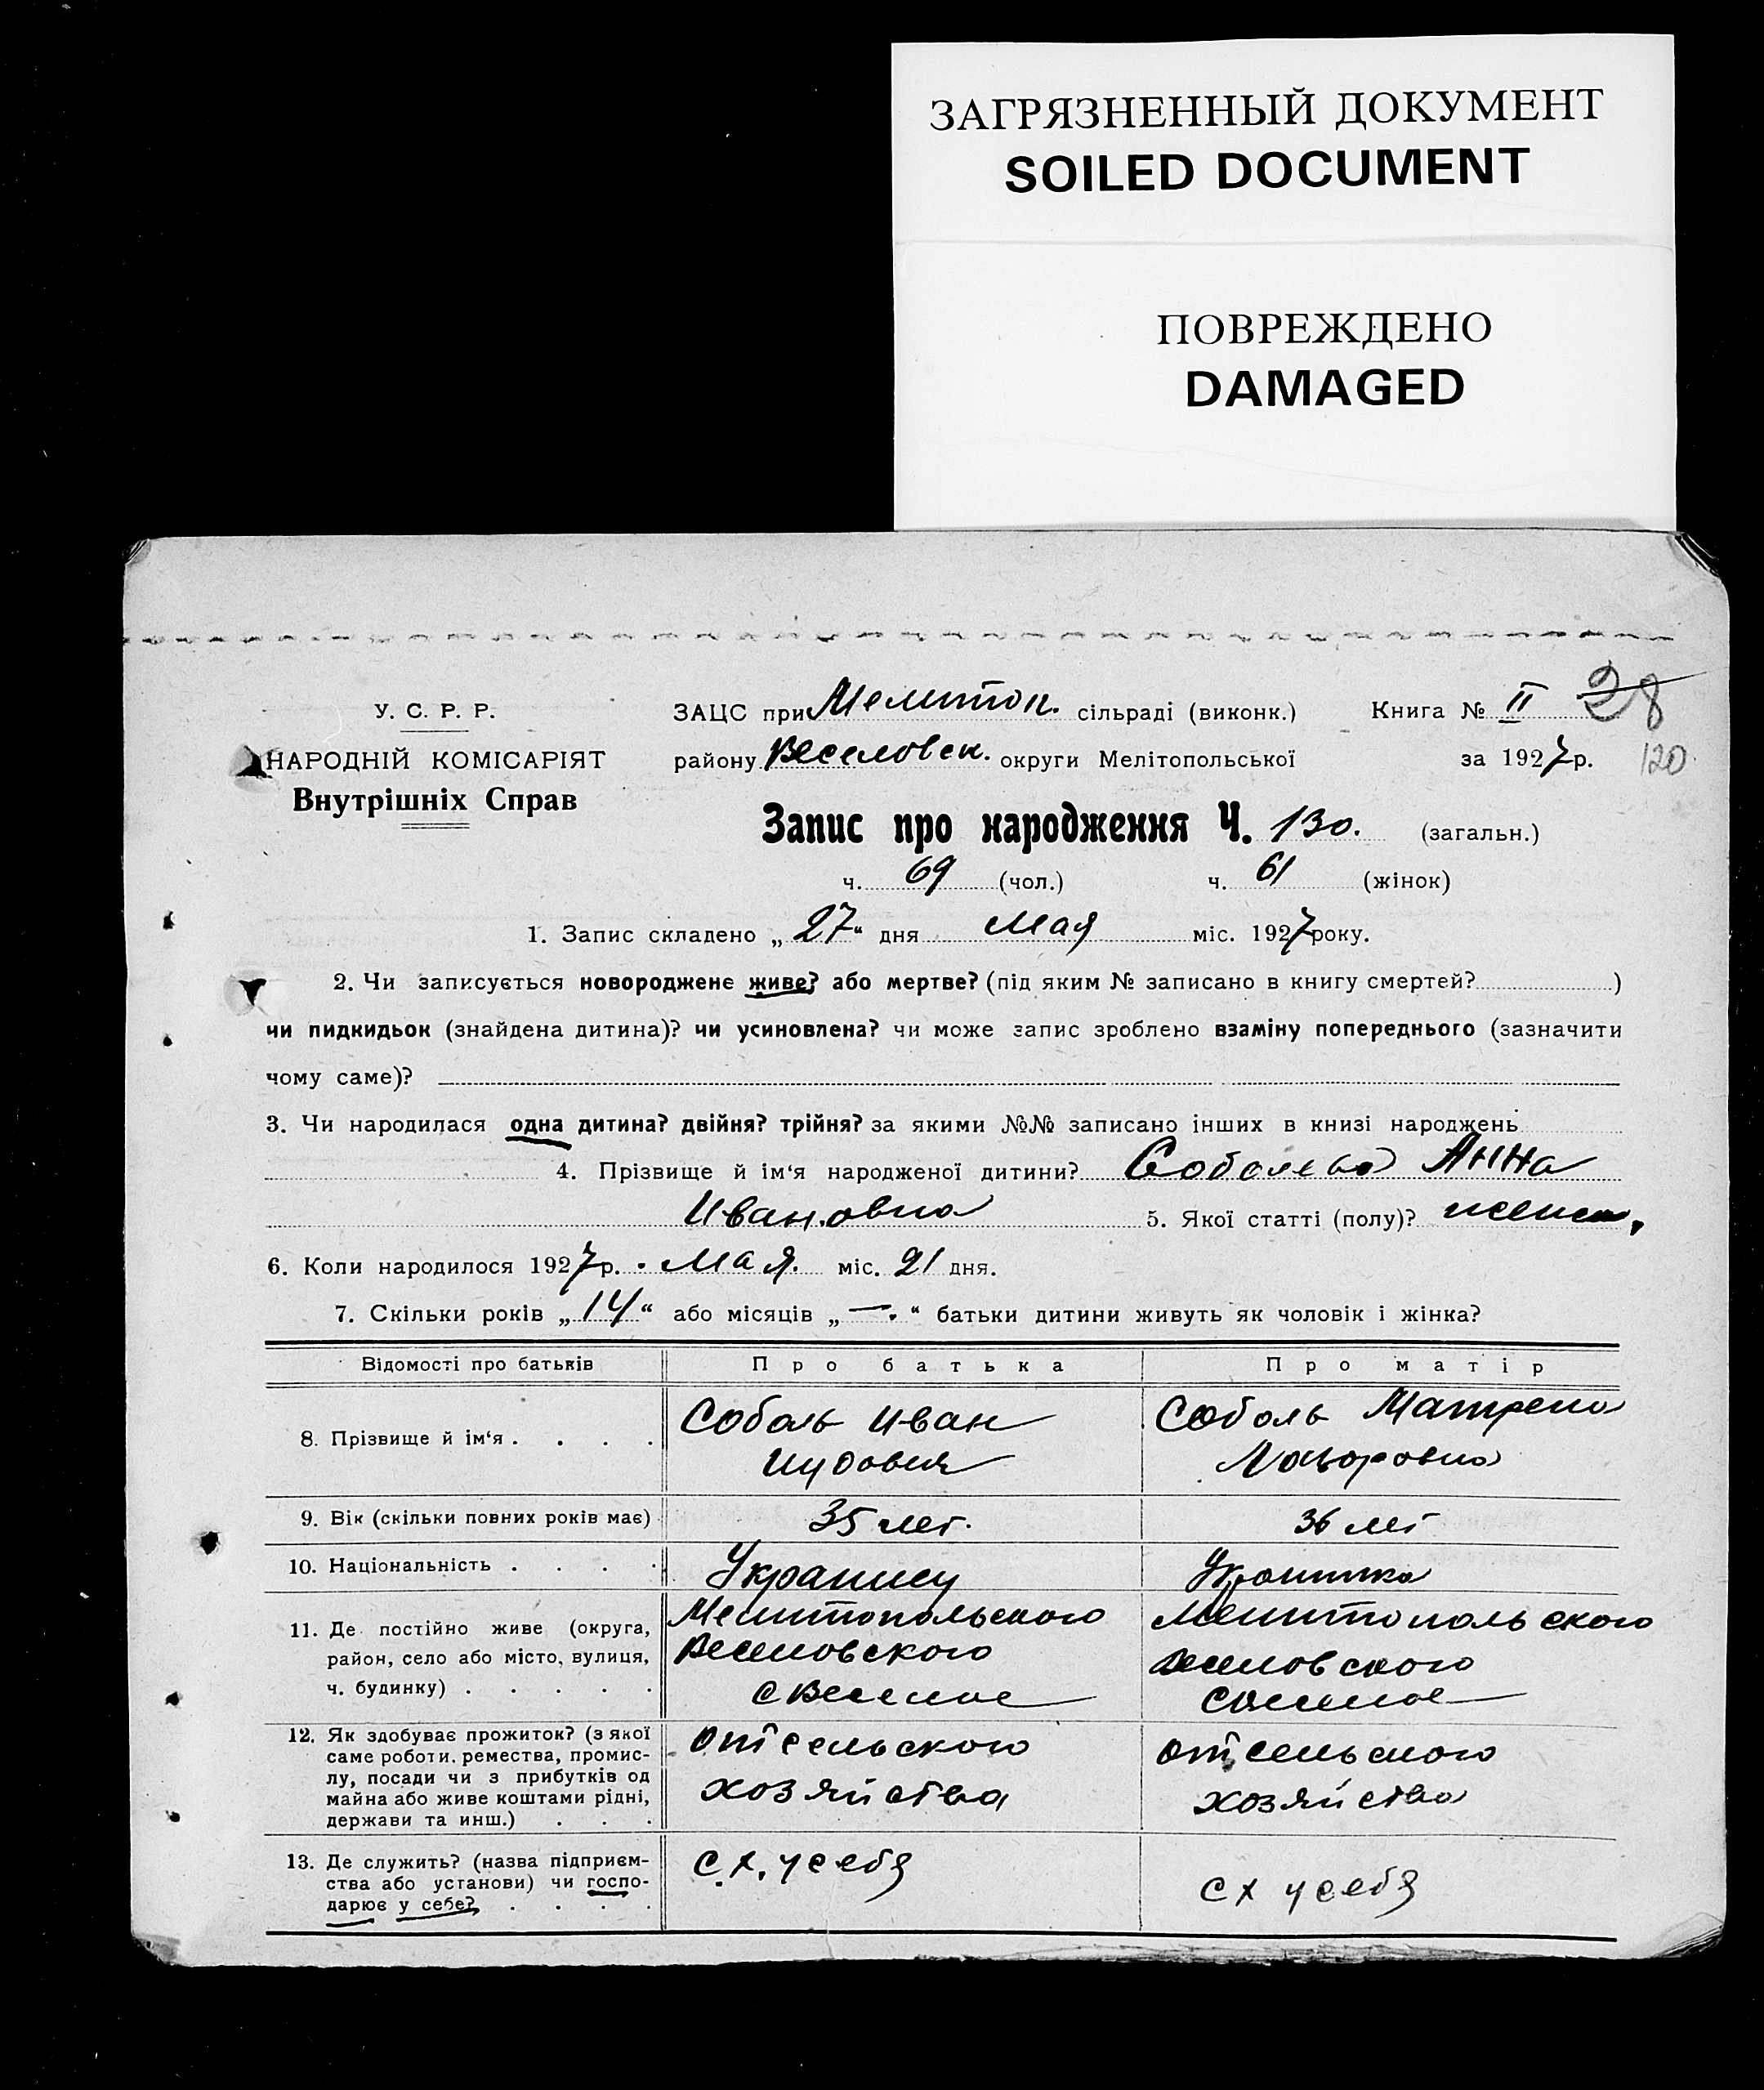 ЗАГРЯЗНЕННЫЙ ДОКУМЕНТ
SOILED DOCUMENT
ПОВРЕЖДЕНО
DAMAGED
28
У. С. Р. Р.
НАРОДНІЙ КОМІСАРІЯТ
Внутрішніх Справ
ЗАЦС при Мелитоп. сільраді (виконк.) Книга № II
району Веселовск. округи Мелітопольської за 1927 р. 120
Запис про народження Ч. 130. (загальн.)
ч. 69 (чол.) ч. 61 (жінок)
1. Запис складено „ 27 “ дня Мая міс. 1927 року.
2. Чи записується новороджене живе? або мертве? (під яким № записано в книгу смертей? )
чи пидкидьок (знайдена дитина)? чи усиновлена? чи може запис зроблено взаміну попереднього (зазначити
чому саме)?
3. Чи народилася одна дитина? двійня? трійня? за якими №№ записано інших в книзі народжень
4. Прізвище й ім‘я народженої дитини? Соболева Анна
Ивановна 5. Якої статті (полу)? женск.
6. Коли народилося 1927 р. Мая. міс. 21 дня.
7. Скільки років „ 14 “ або місяців „ —. “ батьки дитини живуть як чоловік і жінка?
Відомості про батьків Про батька Про матір
8. Прізвище й ім‘я . . . .
Соболь Иван
Соболь Матрена
9. Вік (скільки повних років має) 35 лет. 36 лет
10. Національність . . . . Украинец Украинка
11. Де постійно живе (округа,
район, село або місто, вулиця,
ч. будинку) . . . . .
Мелитопольского
Веселовского
с Веселое
Мелитопольского
Веселовского
с Веселое
12. Як здобуває прожиток? (з якої
саме роботи, ремества, промис-
лу, посади чи з прибутків од
майна або живе коштами рідні,
держави та инш.) . . .
от сельского
хозяйства
от сельского
хозяйства
13. Де служить? (назва підприєм-
ства або установи) чи госпо-
дарює у себе? . . . .
с.х. у себя
с х у себя